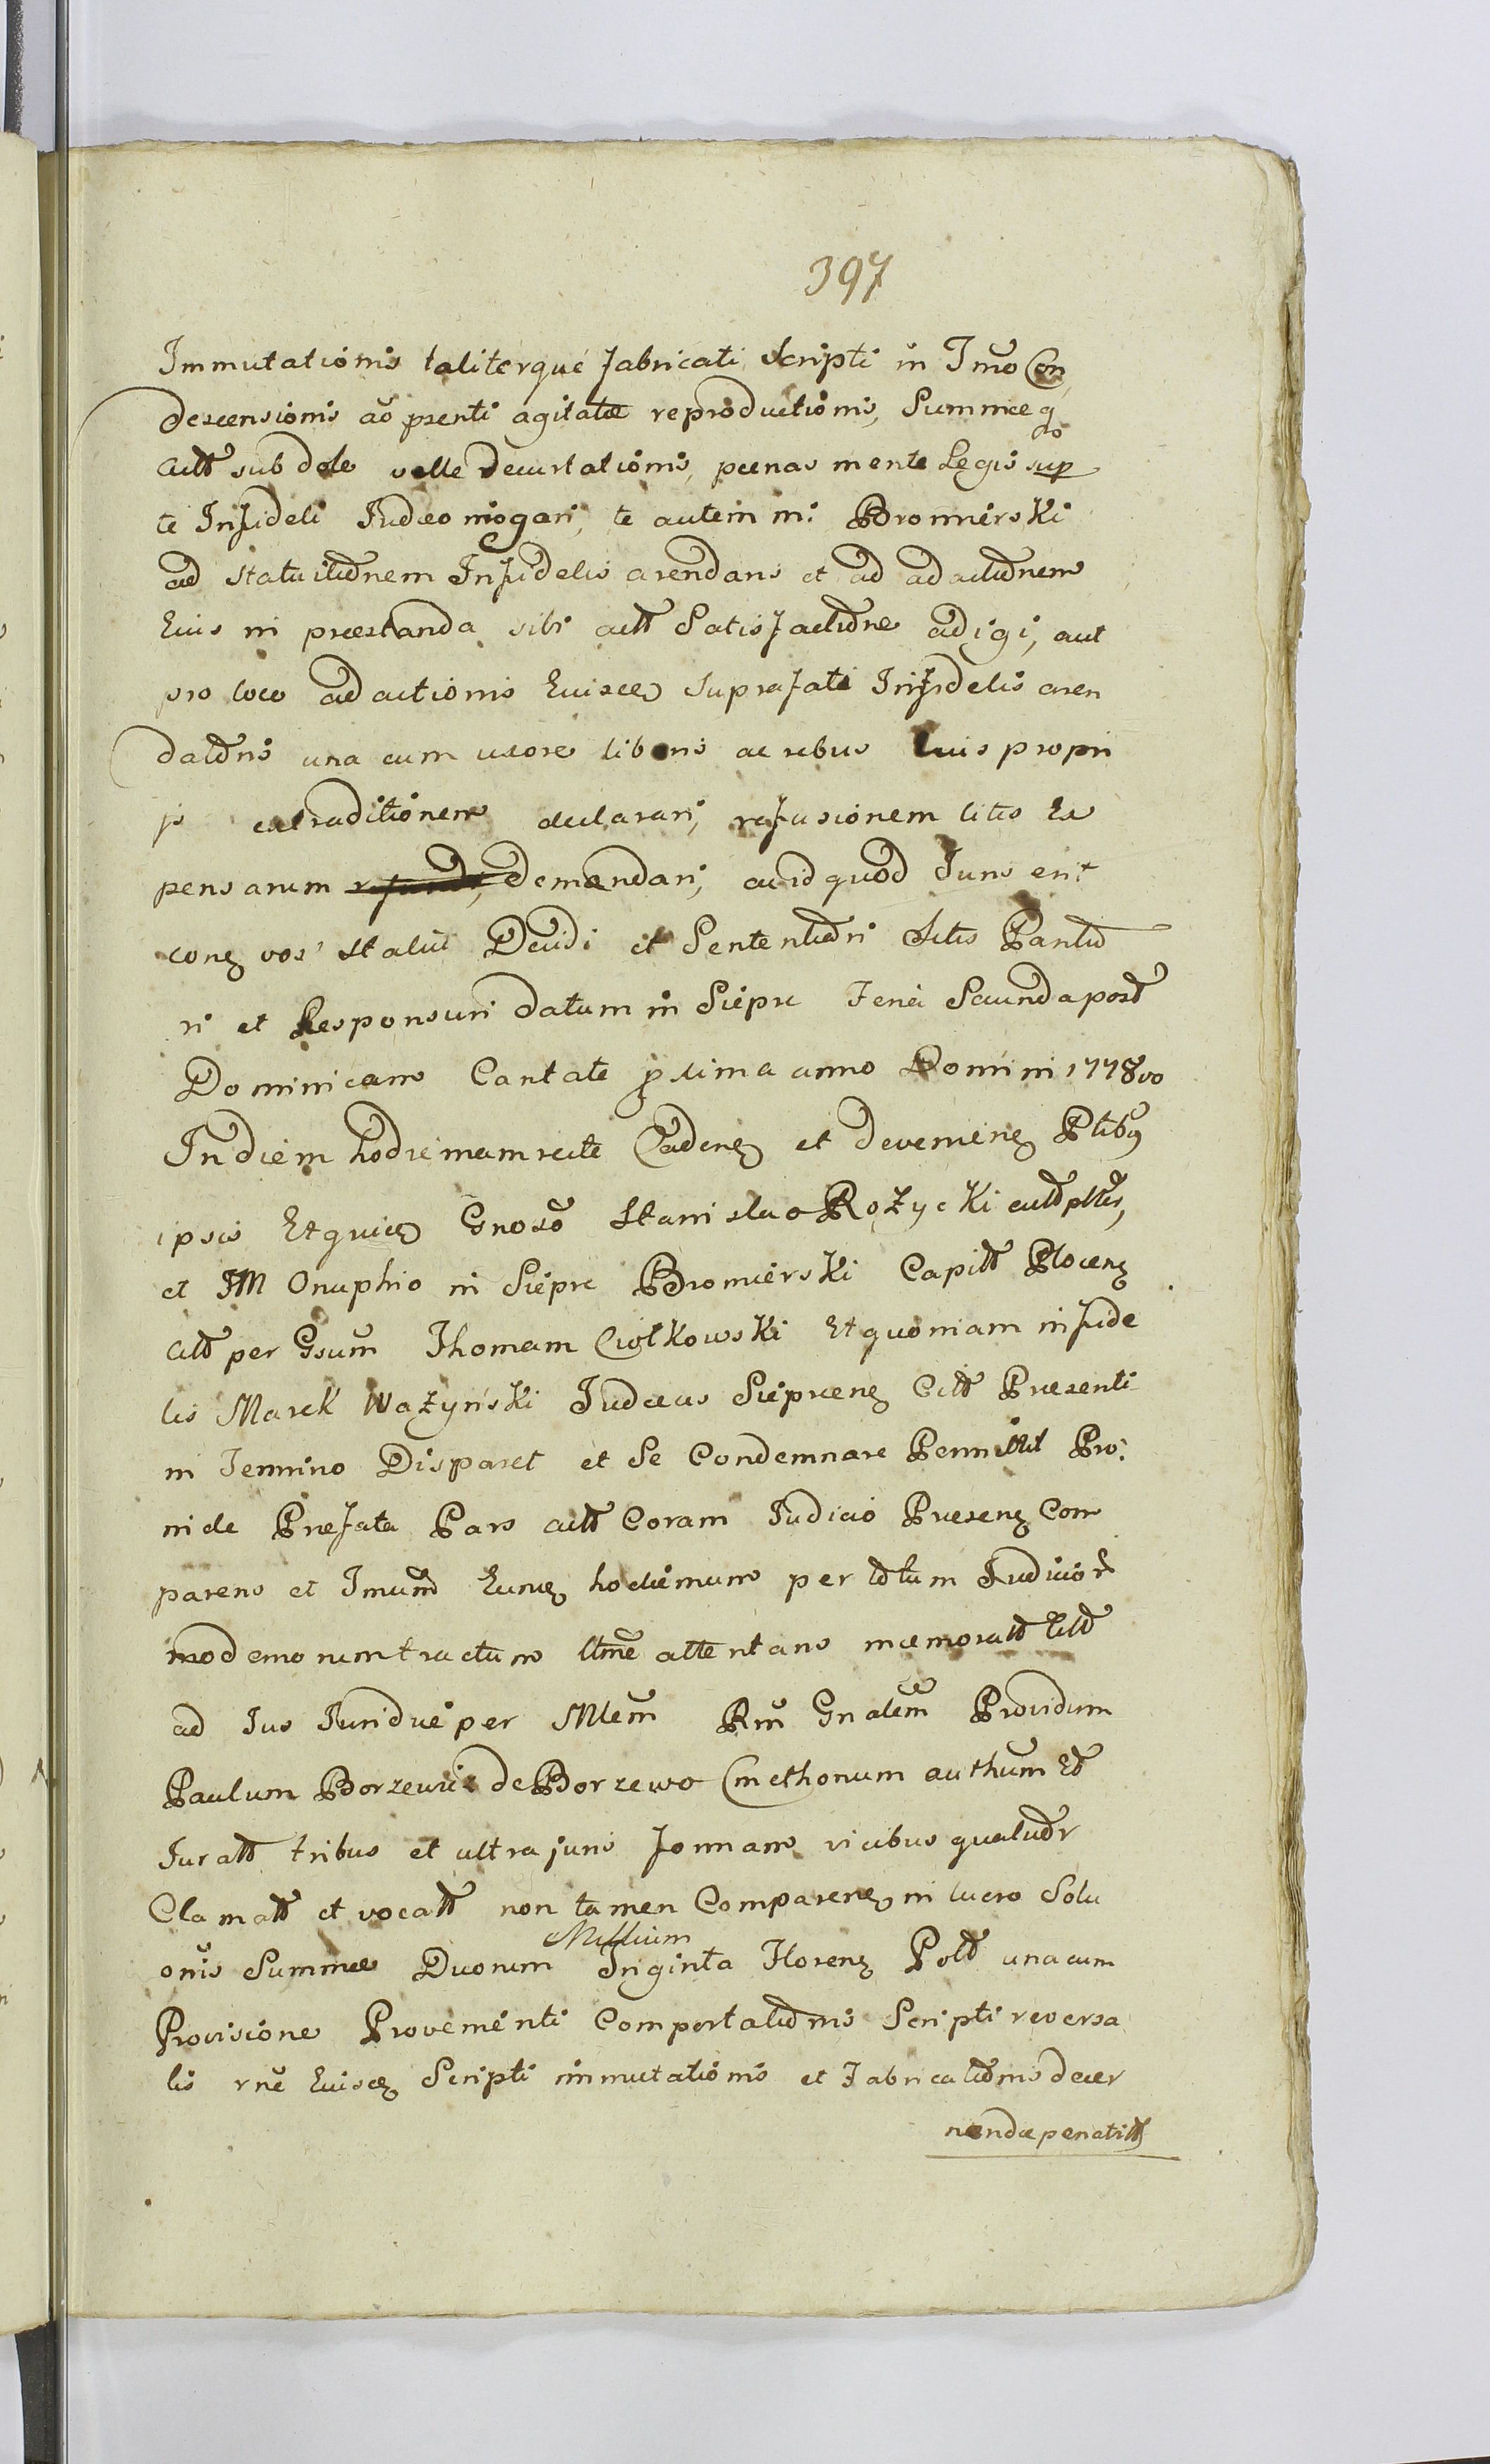 397
Immutationis taliterque fabricati Scripti in Tmo Con
descensionis ao psenti agitatæ reproductionis, Summæ q
do
actt sub dole velle decurtationis, pœnas mente Legis sup
te Infideli Judæo irrogari, te autem m: Bromierski
ad statuitionem Infidelis arendans et ad adactionem
Euis in præstanda sibi actt Satisfactione adigi, aut
pro loco adactionis Euisce suprafati Infidelis aren
datoris una cum uxore liberis ac rebus Euis propri
js extraditionem declarari, refusionem litis Ex
pensarum refundi, demandari, ac id quod Juris erit
conq vos statui Decidi et Sententiari Sitis Paritu
ri et Responsuri datum in Sieprc Feria Secunda post
Dominicam Cantate pxima anno Domini 1778vo
In diem hodiernam recte Cadenq et devenienq Ptibq
ipsis Et quidq Gnoso Stanislao Rożycki actt pltes,
et JM Onuphrio in Sieprc Bromierski Capitt Plocenq
citt per Gsum Thomam Ciołkowski Et quoniam infide
lis Marek Ważyński Judæus Sieprcenq Citt Præsenti
in Termino Disparet et Se Condemnare Permittit Pro:
inde Præfata Pars actt Coram Judicio Præsenq Com
parens et Tmum Eunq hodiernum per totum Judicior
modernorum tractum ltme attentans memoratt Citt
ad Jus Juridice per Mlem Rm Gnalem Providum
Paulum Borzewic de Borzewo Cmethonum authum Et
Juratt tribus et ultra juris formam vicibus qualudr
Clamatt et vocatt non tamen Comparenq in lucro Solu
onis Summæ Duorum Millium Triginta Florenq Poltt una cum
Provisione Provenienti Comportationis Scripti reversa
lis rne Euisdq Scripti immutationis et Fabricationis decer
nendæ penatitt